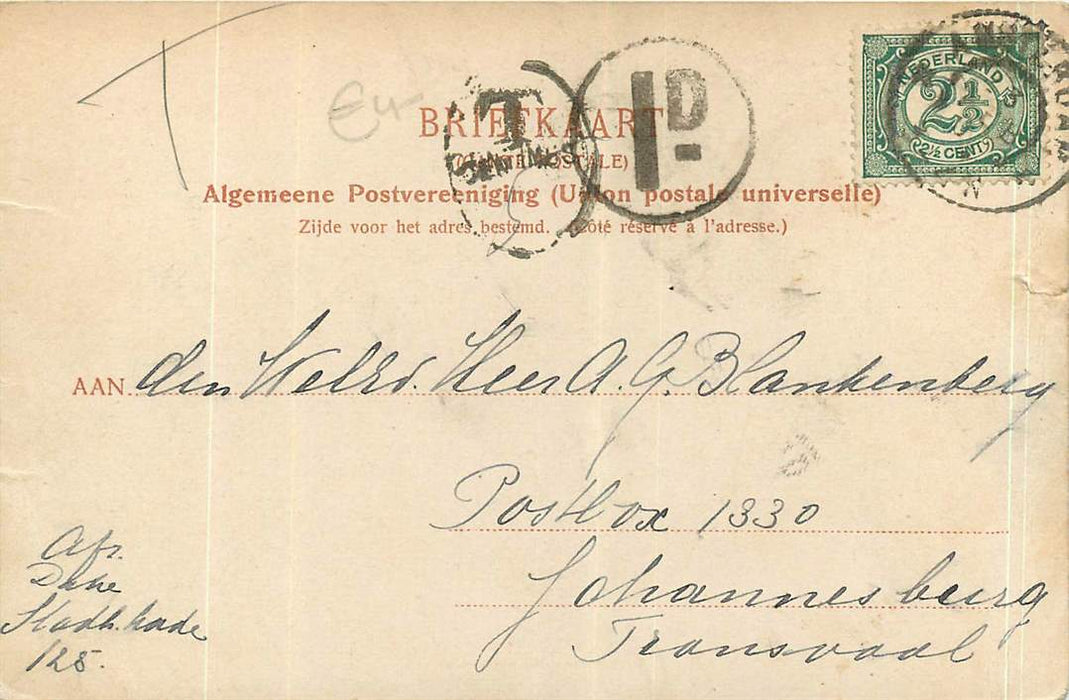 T
CENTIMES
1D
NEDERLAND
2½
2½ CENT
AMSTERDAM
BRIEFKAART
(CARTE POSTALE)
Algemeene Postvereeniging (Union postale universelle)
Zijde voor het adres bestemd. (Côté réservé à l'adresse.)
AAN den WelEd. Heer A. G. Blankenberg
Postbox 1330
Johannesburg
Transvaal
Afz.
Stadh.kade
125.